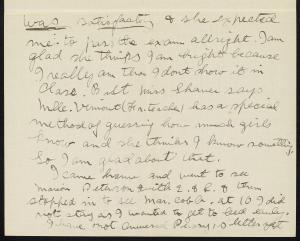 was satisfactory & she expected
me to pass the exam allright. I am
glad she thinks I am bright because
I really am tho I dont show it in
class. But Miss says
Mlle. Vimont (Fr. teacher) has a special
method of guessing how much girls
know and she thinks I know something
So I am glad about that.
I came home and went to see
Marion Peterson with E. & R. & then
stopped in to see Mar. Cobb. at 10 I did
not stay as I wanted to get to bed early.
I have not answered letter yet